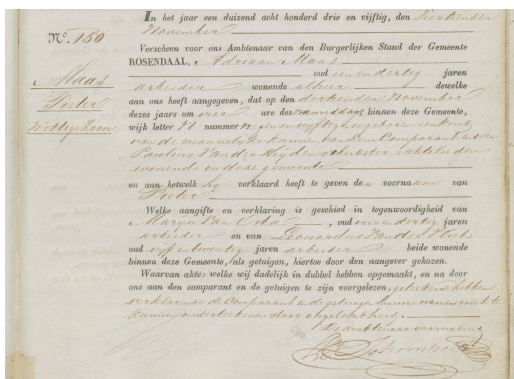 In het jaar een duizend acht honderd drie en vijftig, den veertienden
November
N°. 150
Verscheen voor ons Ambtenaar van den Burgerlijken Stand der Gemeente
ROSENDAAL, Adriaan Maas
oud een en dertig jaren
Maas
arbeider wonende alhier dewelke
Pieter
aan ons heeft aangegeven, dat op den dertienden November
Wettige Zoon
dezes jaars om vier ure des namiddags binnen deze Gemeente,
wijk letter nummer negen en vijftig, is geboren een kind
van de mannelijke kunne, van hem Comparant en van
Paulina Van der Heijden echtelieden
wonende in deze gemeente
en aan hetwelk hij verklaard heeft te geven de voornaam van
Pieter
Welke aangifte en verklaring is geschied in tegenwoordigheid van
Van Osta, oud dertig jaren
arbeider en van Leonardus Van der
oud vijf en twintig jaren arbeider beide wonende
binnen deze Gemeente, als getuigen, hiertoe door den aangever gekozen.
Waarvan akte: welke wij dadelijk in dubbel hebben opgemaakt, en na door
ons aan den comparant en de getuigen te zijn voorgelezen, geteekend hebben
verklarende de Comparant en de getuigen hunne namen niet te
kunnen onderteekenen
De ambtenaar voornoemd